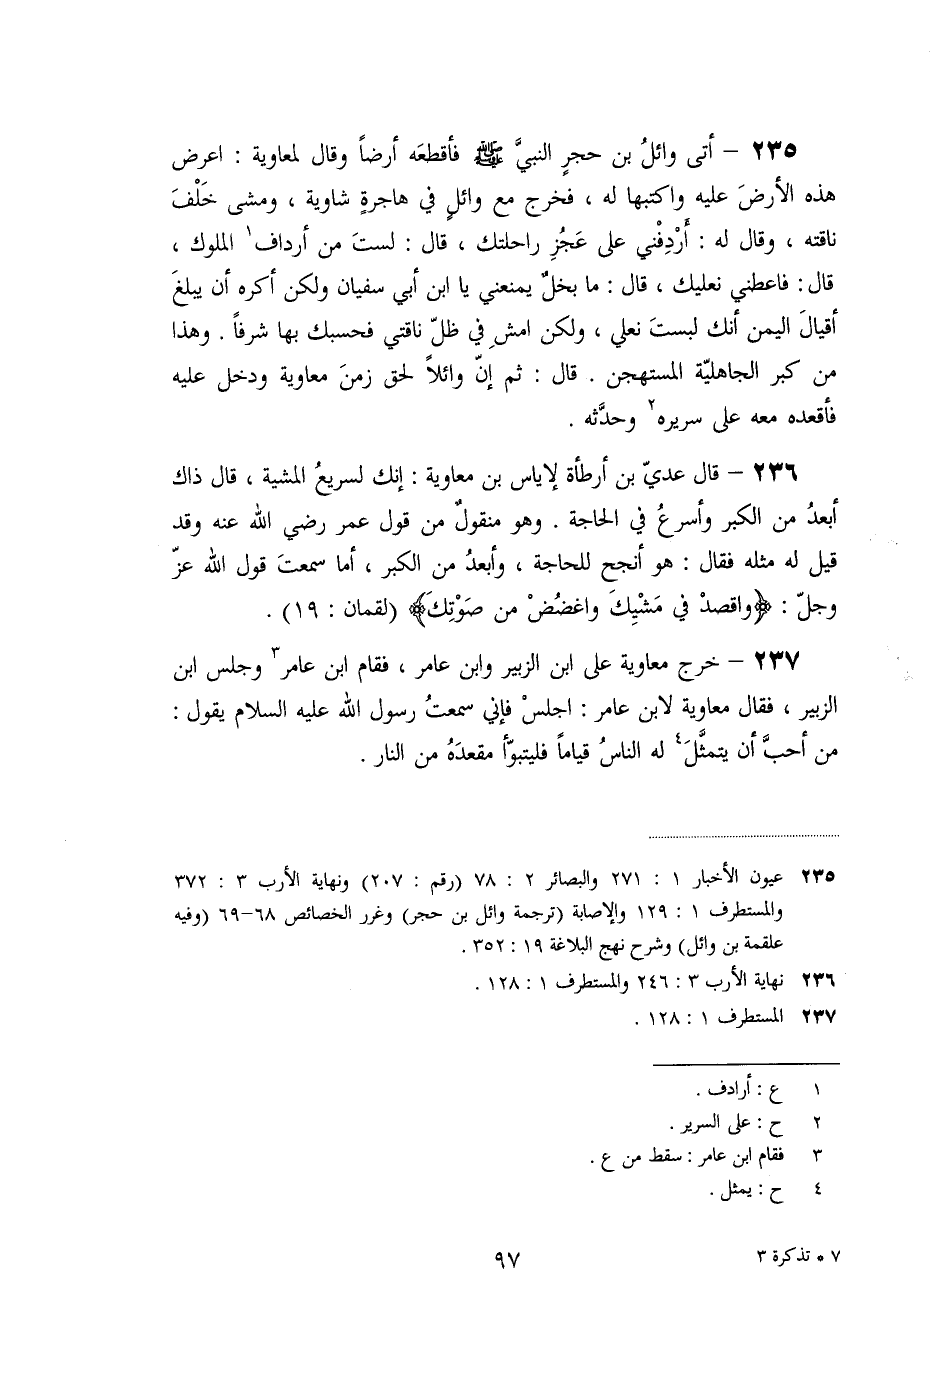 ٢٣٥ – أتى وائلُ بن حجرٍ النبيَّ ﷺ فأقطعَه أرضاً وقال لمعاوية : اعرض
هذه الأرضَ عليه واكتبها له ، فخرج مع وائلٍ في هاجرةٍ شاوية ، ومشى خَلْفَ
ناقته ، وقال له : أَرْدِفْني على عَجُزِ راحلتك ، قال : لستَ من أرداف١ الملوك ،
قال : فاعطني نعليك ، قال : ما بخلٌ يمنعني يا ابن أبي سفيان ولكن أكره أن يبلغَ
أقيالَ اليمن أنك لبستَ نعلي ، ولكن امشِ في ظلّ ناقتي فحسبك بها شرفاً . وهذا
من كبر الجاهليّة المستهجن . قال : ثم إنّ وائلاً لحق زمنَ معاوية ودخل عليه
فأقعده معه على سريره٢ وحدَّثه .
٢٣٦ – قال عديّ بن أرطأة لإياس بن معاوية : إنك لسريعُ المشية ، قال ذاك
أبعدُ من الكبر وأسرعُ في الحاجة . وهو منقولٌ من قول عمر رضي الله عنه وقد
قيل له مثله فقال : هو أنجح للحاجة ، وأبعدُ من الكبر ، أما سمعتَ قول الله عزّ
وجلّ : ﴿واقصدْ في مَشْيِكَ واغضُضْ من صَوْتِكَ﴾ (لقمان : ١٩) .
٢٣٧ – خرج معاوية على ابن الزبير وابن عامر ، فقام ابن عامر٣ وجلس ابن
الزبير ، فقال معاوية لابن عامر : اجلسْ فإني سمعتُ رسول الله عليه السلام يقول :
من أحبَّ أن يتمثَّلَ٤ له الناسُ قياماً فليتبوّأ مقعدَهُ من النار .
٢٣٥ عيون الأخبار ١ : ٢٧١ والبصائر ٢ : ٧٨ (رقم : ٢٠٧) ونهاية الأرب ٣ : ٣٧٢
والمستطرف ١ : ١٢٩ والإصابة (ترجمة وائل بن حجر) وغرر الخصائص ٦٨–٦٩ (وفيه
علقمة بن وائل) وشرح نهج البلاغة ١٩ : ٣٥٢ .
٢٣٦ نهاية الأرب ٣ : ٢٤٦ والمستطرف ١ : ١٢٨ .
٢٣٧ المستطرف ١ : ١٢٨ .
١ ع : أرادف .
٢ ح : على السرير .
٣ فقام ابن عامر : سقط من ع .
٤ ح : يمثل .
٩٧
٧ * تذكرة ٣